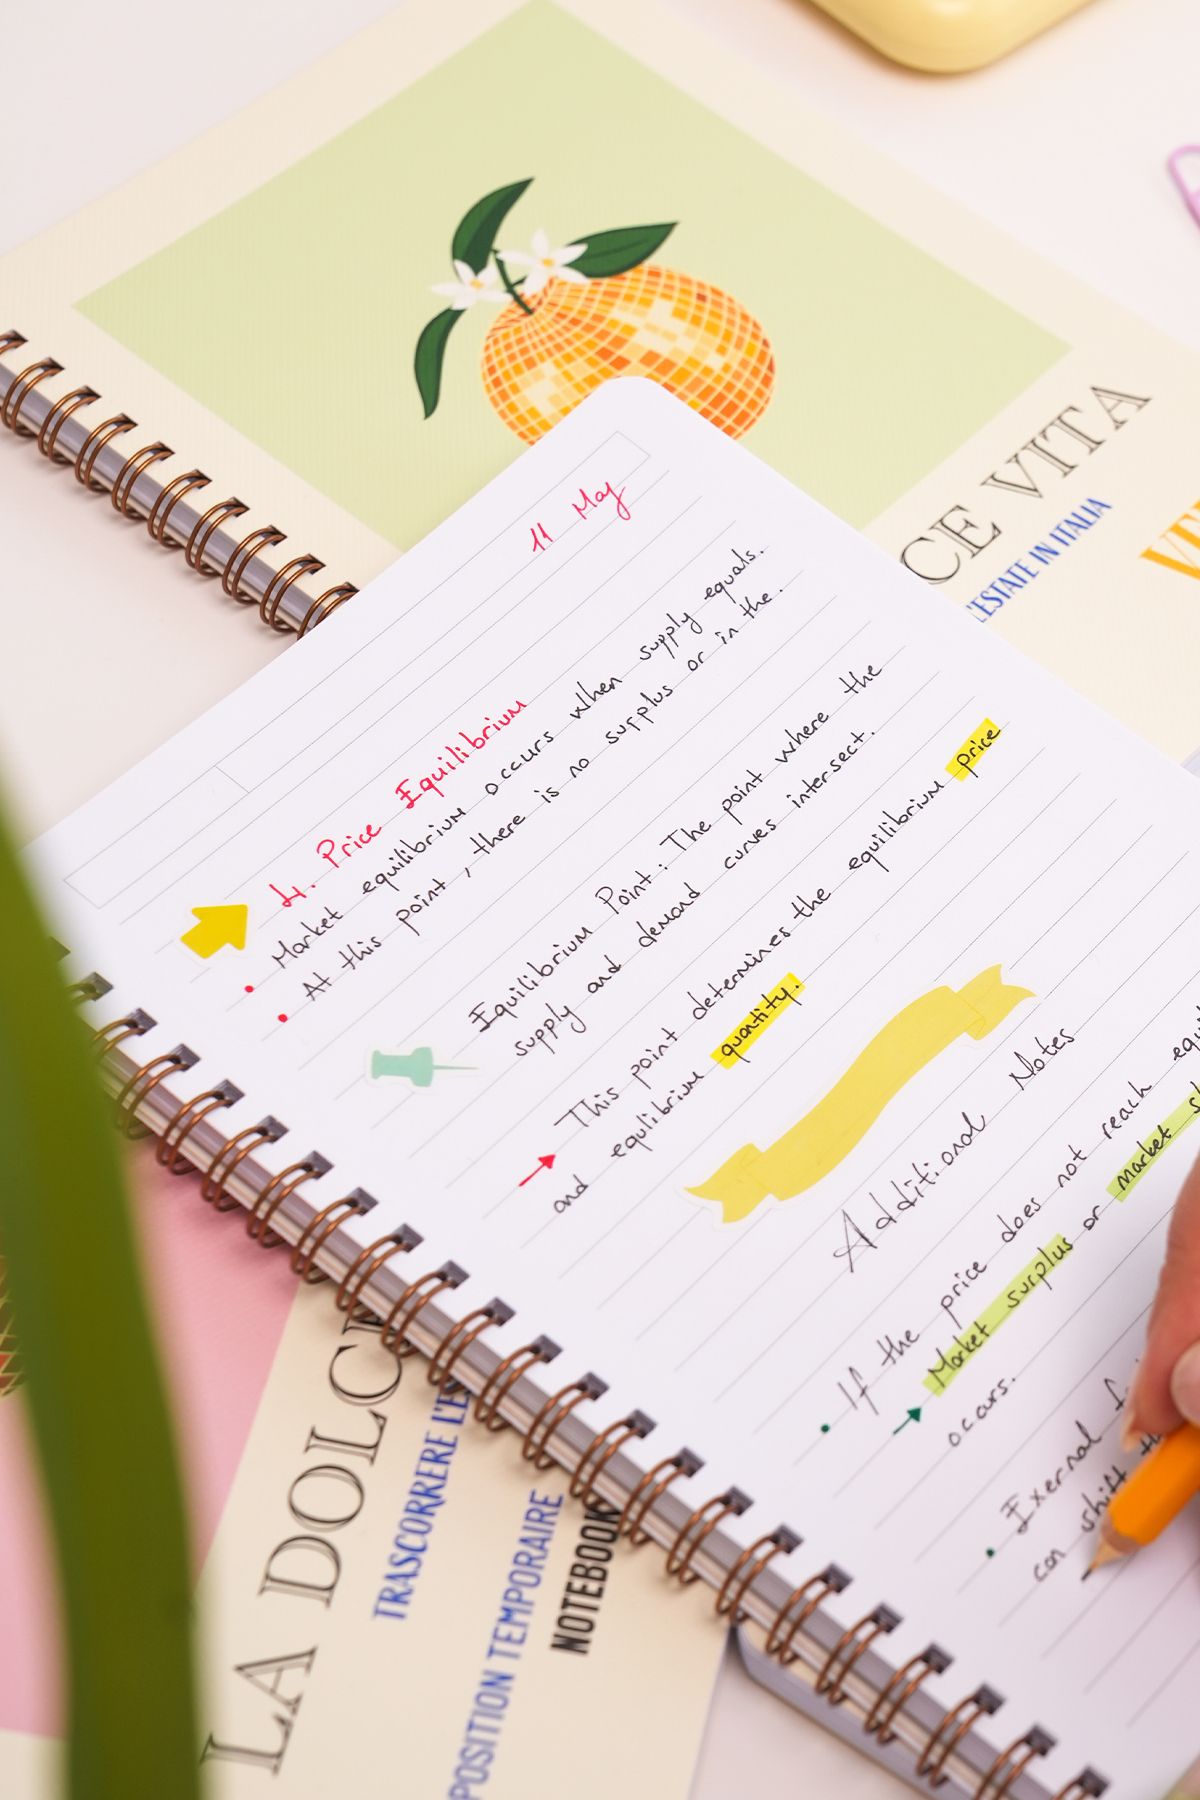 11 May
4. Price Equilibrium
Market equilibrium occurs when supply equals.
At this point, there is no surplus or in the.
Equilibrium Point: The point where the
supply and demand curves intersect.
This point determines the equilibrium price
and equlibrium quantity.
Additional Notes
If the price does not reach
Market surplus or market
occurs.
Exernal
can shift
CE VITA
L'ESTATE IN ITALIA
LA DOLCE
TRASCORRERE L'E
POSITION TEMPORAIRE
NOTEBOOK